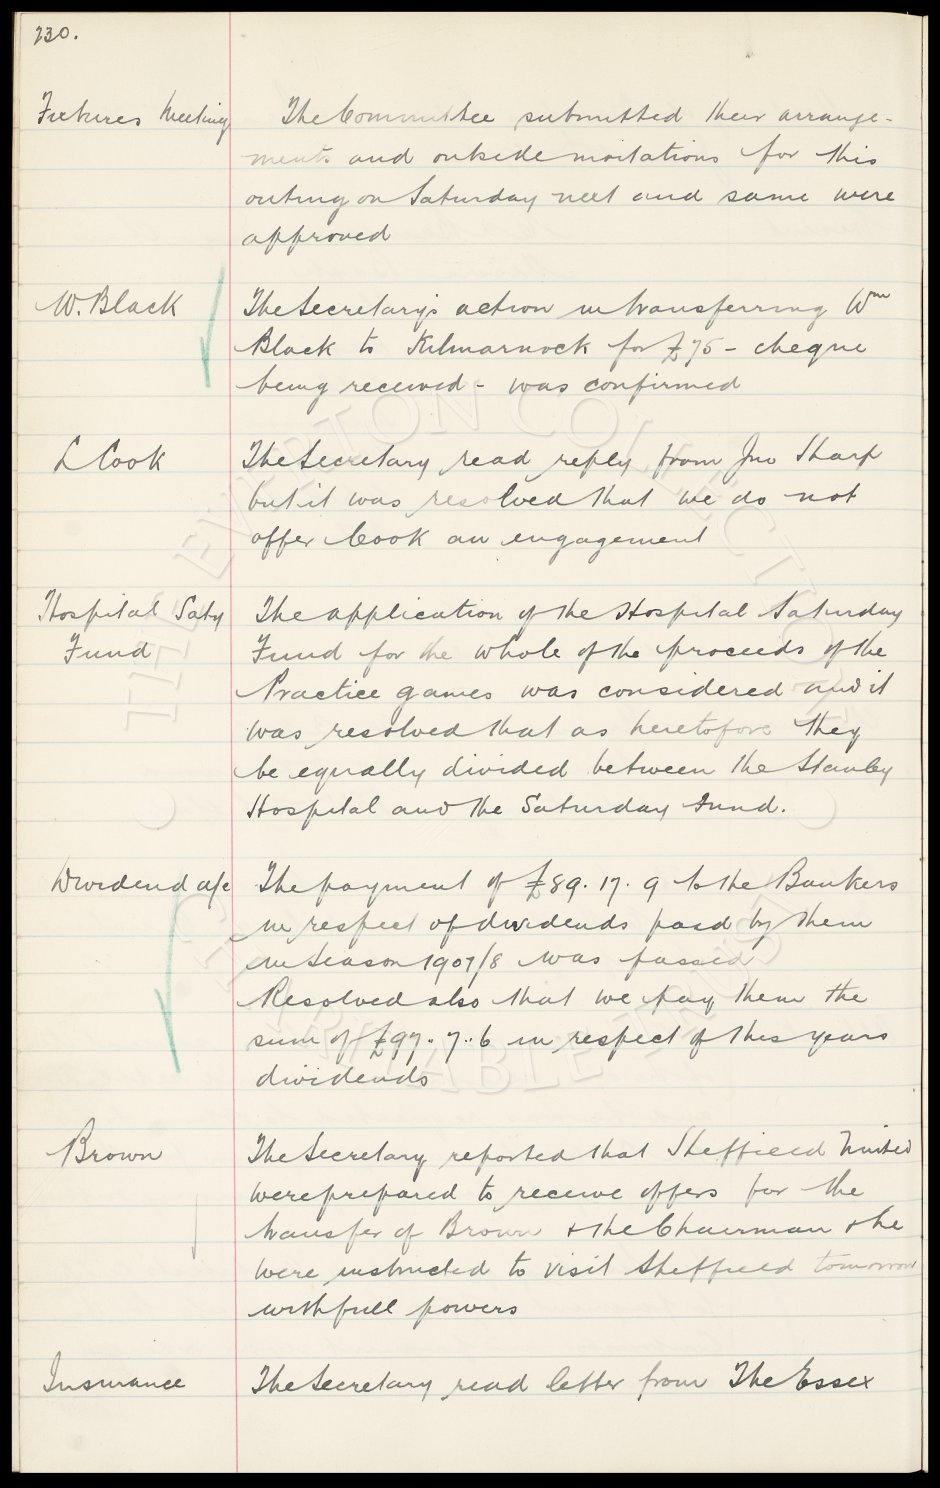 230.
Fixtures Meeting The Committee submitted their arrange-
ments and outside invitations for this
outing on Saturday next and same were
approved
W. Black The Secretary's action in transferring Wm
Black to Kilmarnock for £75 - cheque
being received - was confirmed
L Cook The Secretary read reply from Jno Sharp
but it was resolved that we do not
offer Cook an engagement
Hospital Saty The application of the Hospital Saturday
Fund Fund for the whole of the proceeds of the
Practice games was considered and it
was resolved that as heretofore they
be equally divided between the Stanley
Hospital and the Saturday Fund.
Dividend a/c The payment of £89.17.9 to the Bankers
in respect of dividends paid by them
in Season 1907/8 was passed
Resolved also that we pay them the
sum of £97.7.6 in respect of this years
dividends
Brown The Secretary reported that Sheffield United
were prepared to receive offers for the
transfer of Brown & the Chairman & he
were instructed to visit Sheffield tomorrow
with full powers
Insurance The Secretary read letter from The Essex
THE EVERTON COLLECTION
CHARITABLE TRUST